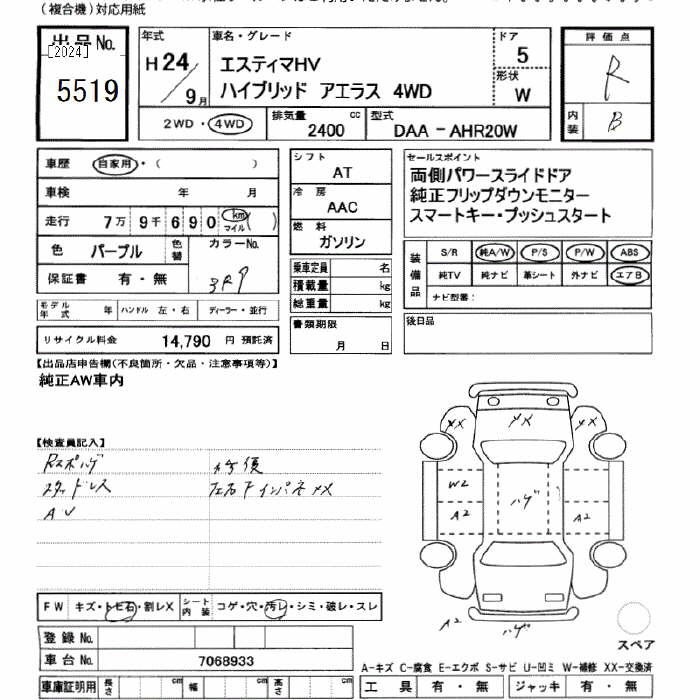 (複合機)対応用紙
出品No.
[2024]
5519
年式
H24/9月
車名・グレード
エスティマHV
ハイブリッド アエラス 4WD
ドア
5
形状
W
評価点
R
内装
B
2WD・4WD
排気量
2400 cc
型式
DAA-AHR20W
車歴 自家用・( )
車検 年 月
走行 7万 9千 6 9 0 km マイル ( )
色 パープル 色替 カラーNo.
保証書 有・無 3R9
モデル年式 年 ハンドル 左・右 ディーラー・並行
リサイクル料金 14,790 円 預託済
シフト
AT
冷房
AAC
燃料
ガソリン
乗車定員 名
積載量 kg
総重量 kg
書類期限
月 日
セールスポイント
両側パワースライドドア
純正フリップダウンモニター
スマートキー・プッシュスタート
装備品
S/R 純A/W P/S P/W ABS
純TV 純ナビ 革シート 外ナビ エアB
ナビ型番:
後日品
【出品店申告欄(不良箇所・欠品・注意事項等)】
純正AW車内
【検査員記入】
Rスポハゲ
スタッドレス
AU
修復
左右下インパネXX
XX
XX
XX
W2
A2
ハゲ
A2
A2
ハゲ
スペア
FW キズ・トビ石・割レX シート内装 コゲ・穴・汚レ・シミ・破レ・スレ
登録No.
車台No. 7068933
車庫証明用 長さ cm 幅 cm 高さ cm
A-キズ C-腐食 E-エクボ S-サビ U-凹ミ W-補修 XX-交換済
工具 有・無 ジャッキ 有・無